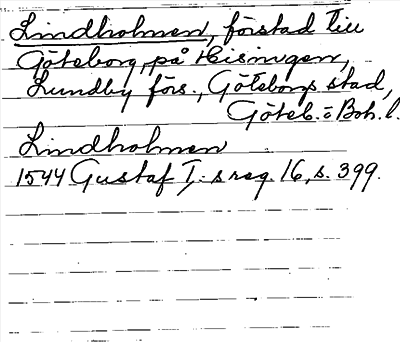 Lindholmen, förstad till
Göteborg, på Hisingen,
Lundby förs., Göteborgs stad,
Göteb. o Boh. l.
Lindholmen
1544 Gustaf I:s reg. 16, s. 399.